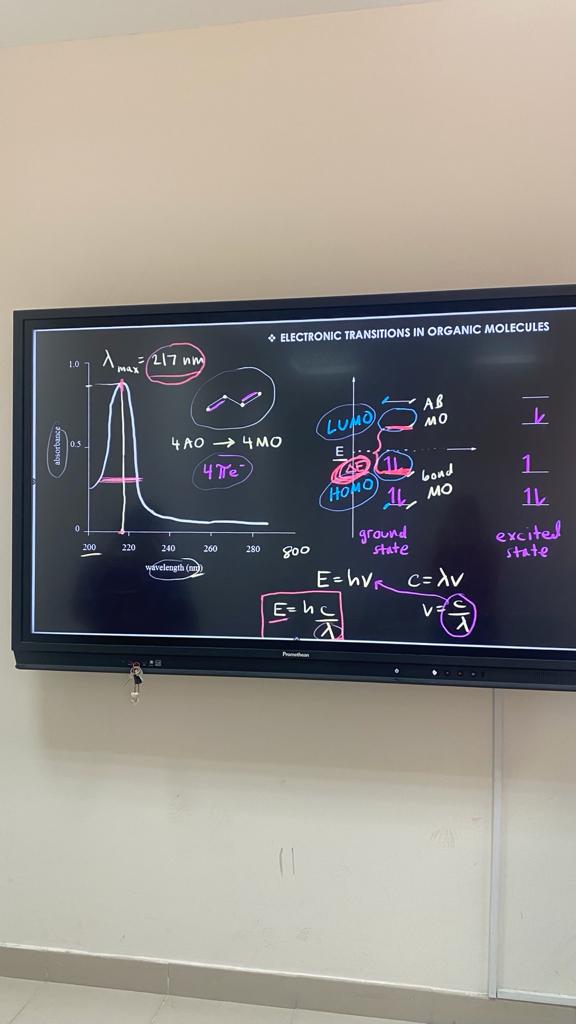 ❖ ELECTRONIC TRANSITIONS IN ORGANIC MOLECULES
λmax = 217 nm
1.0
0.5
0
absorbance
200 220 240 260 280 800
wavelength (nm)
4AO → 4MO
4πe⁻
E
LUMO
ΔE
HOMO
AB
MO
bond
MO
ground
state
excited
state
E = hν
c = λν
E = h c/λ
ν = c/λ
Promethean